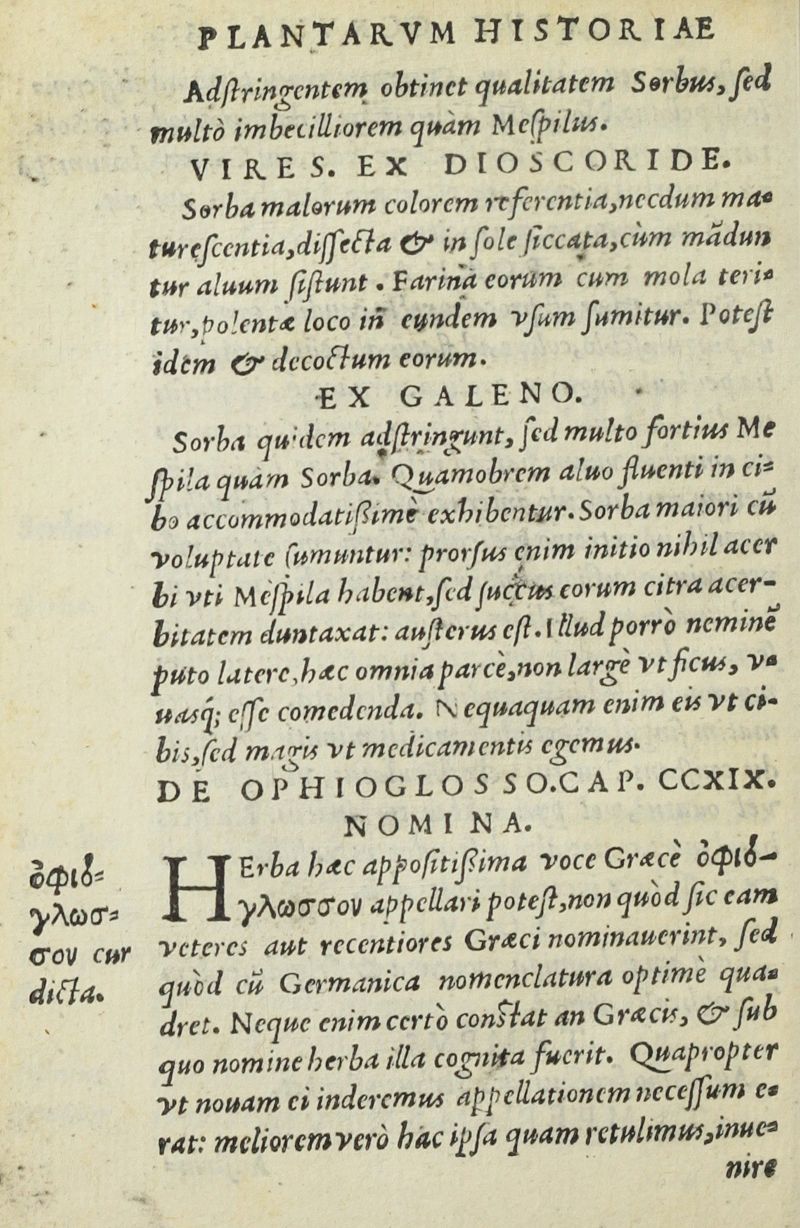 PLANTARVM HISTORIAE
Adſtringentem obtinet qualitatem Sorbus, ſed
multò imbecilliorem quàm Meſpilus.
VIRES. EX DIOSCORIDE.
Sorba malorum colorem referentia, necdum ma-
tureſcentia, diſſecta & in ſole ſiccata, cùm mãdun
tur aluum ſiſtunt. Farina eorum cum mola teri-
tur, polentæ loco in eundem vſum ſumitur. Poteſt
idem & decoctum eorum.
EX GALENO.
Sorba quidem adſtringunt, ſed multo fortius Me
ſpila quàm Sorba. Quamobrem aluo fluenti in ci-
bo accommodatiſsimè exhibentur. Sorba maiori cũ
voluptate ſumuntur: prorſus enim initio nihil acer
bi vti Meſpila habent, ſed ſuccus eorum citra acer-
bitatem duntaxat: auſterus eſt. Illud porrò neminẽ
puto latere, hæc omnia parcè, non largè vt ficus, v-
uasq́; eſſe comedenda. Nequaquam enim eis vt ci-
bis, ſed magis vt medicamentis egemus.
DE OPHIOGLOSSO. CAP. CCXIX.
NOMINA.
HErba hæc appoſitiſsima voce Græcè ὀφιό-
γλωσσον appellari poteſt, non quòd ſic eam
veteres aut recentiores Græci nominauerint, ſed
quòd cũ Germanica nomenclatura optimè qua-
dret. Neque enim certò conſtat an Græcis, & ſub
quo nomine herba illa cognita fuerit. Quapropter
vt nouam ei inderemus appellationem neceſſum e-
rat: meliorem verò hac ipſa quam retulimus, inue-
nire
ὀφιό-
γλωσ-
σον cur
dicta.